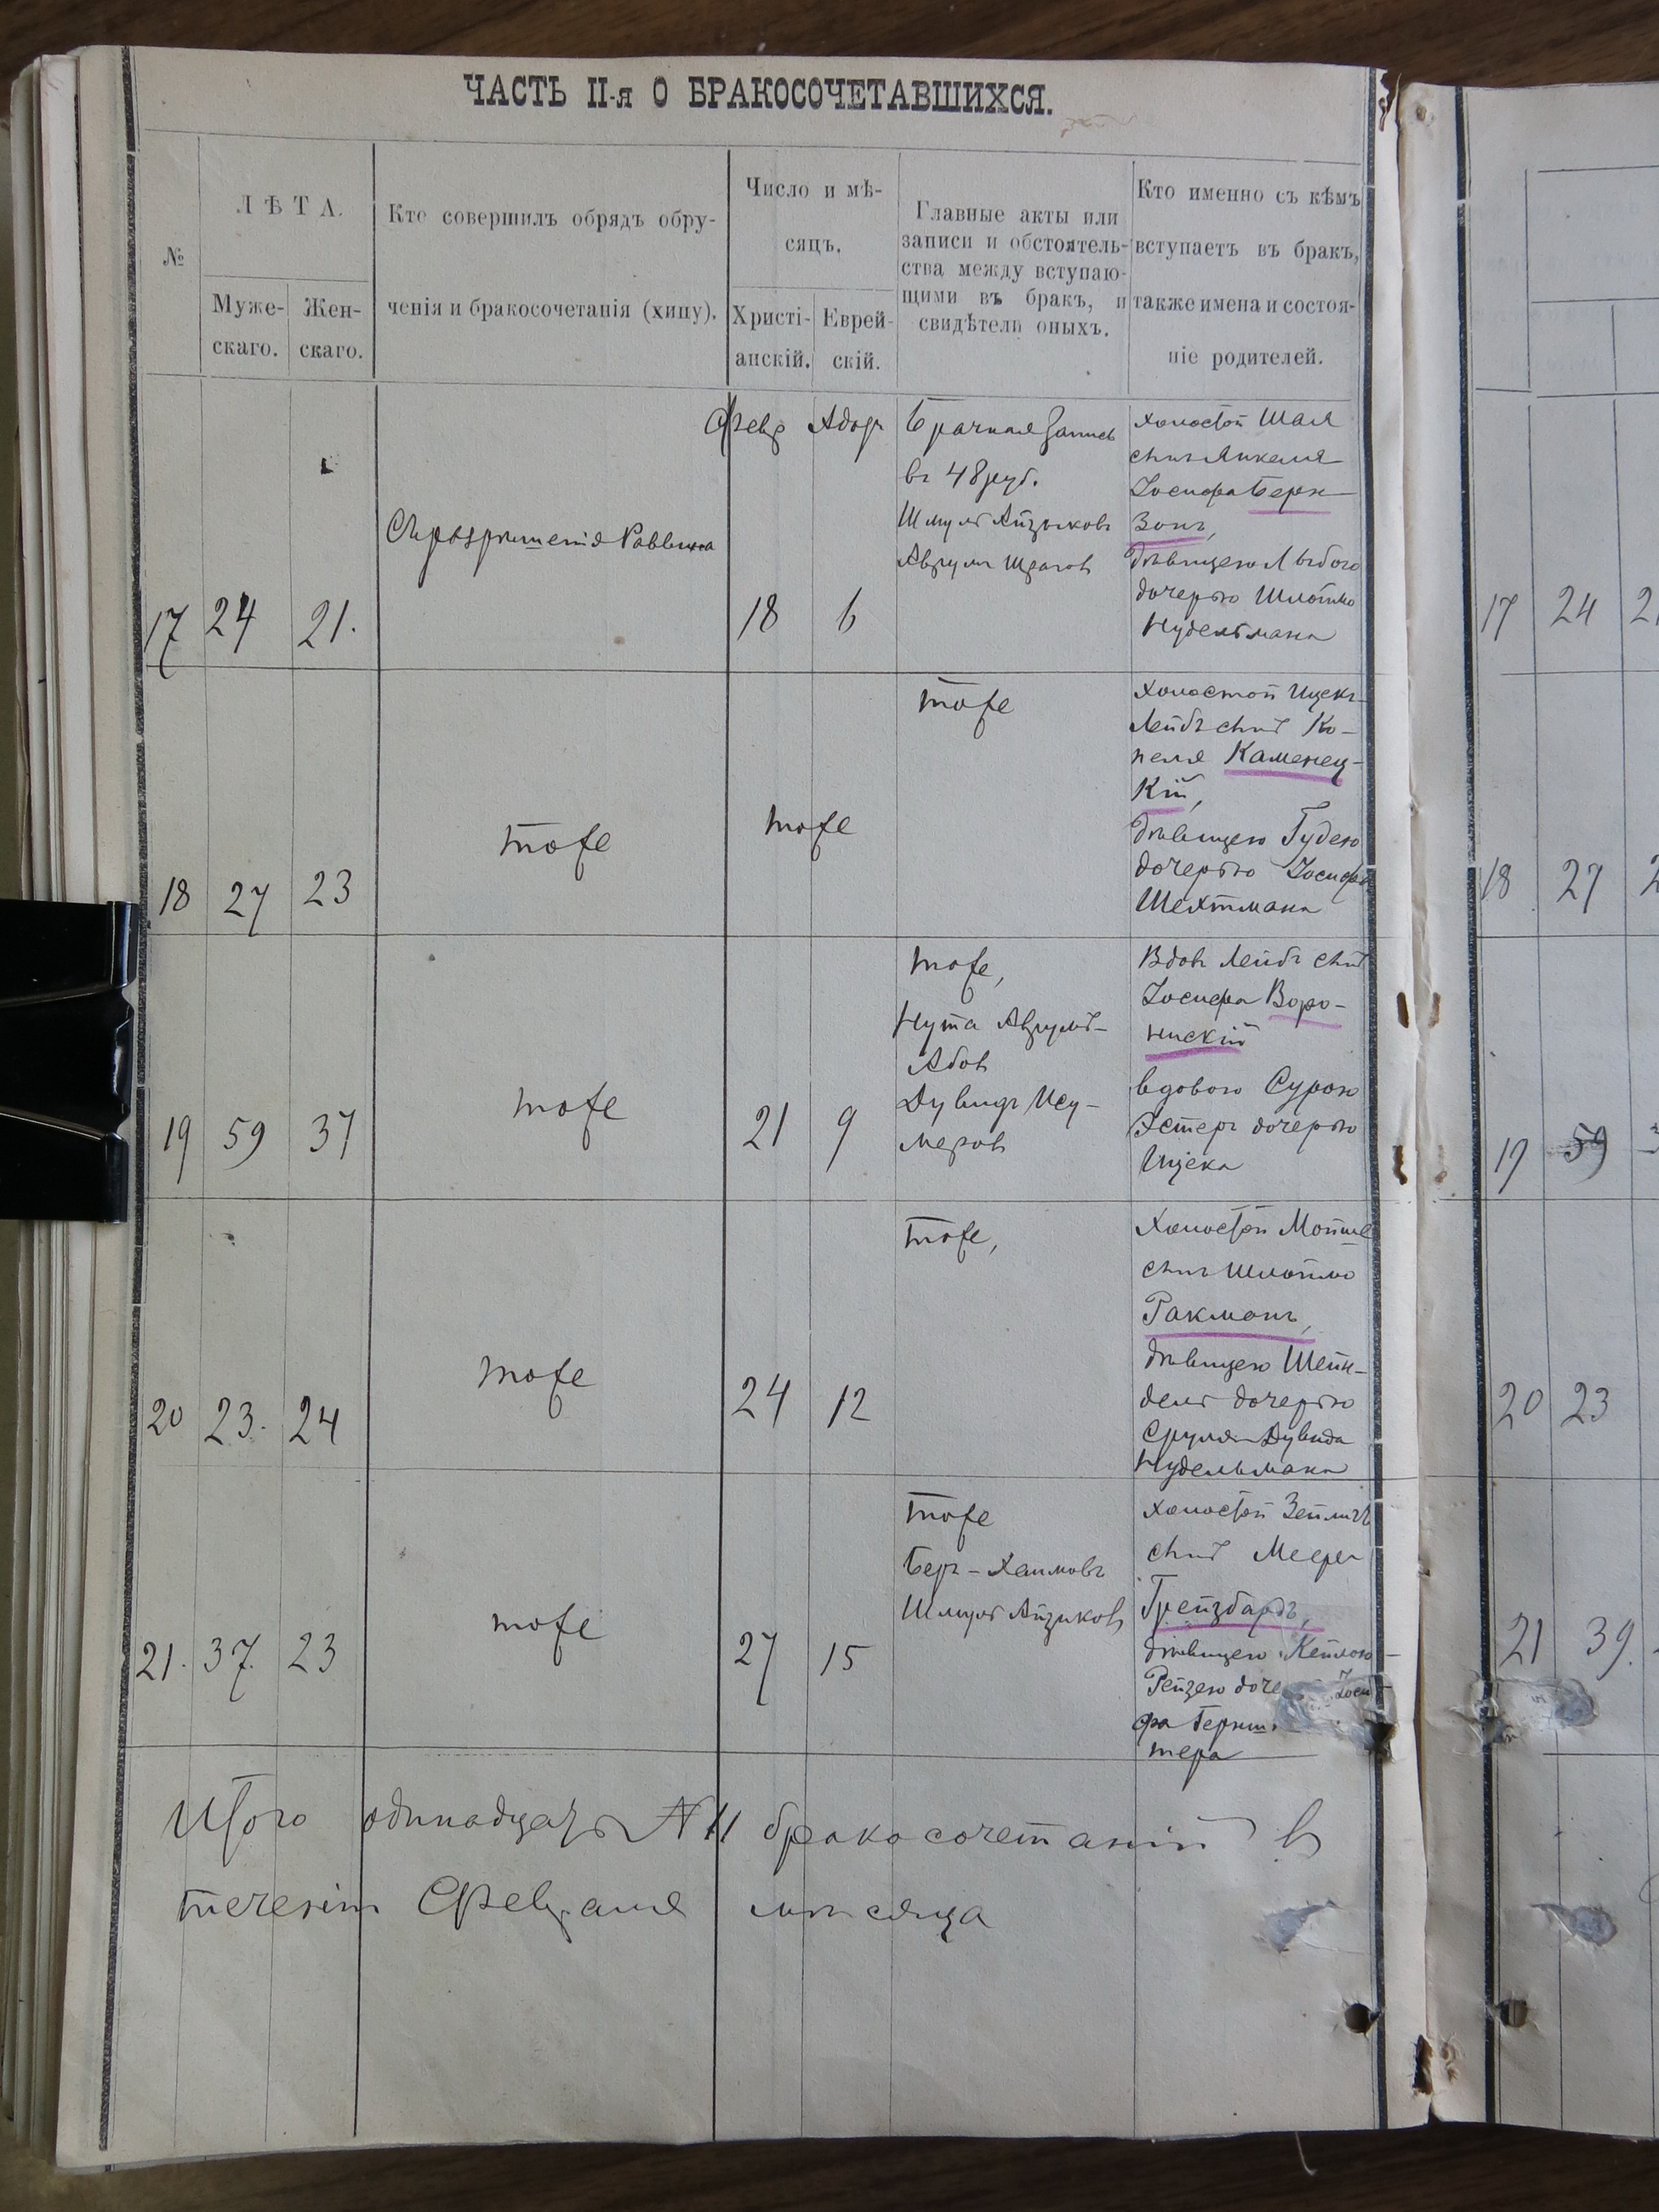 ЧАСТЬ II-я О БРАКОСОЧЕТАВШИХСЯ.
№
ЛѢТА.
Муже-
скаго.
Жен-
скаго.
Кто совершилъ обрядъ обру-
ченія и бракосочетанія (хипу).
Число и мѣ-
сяцъ.
Христі-
анскій.
Еврей-
скій.
Главные акты или
записи и обстоятель-
ства между вступаю-
щими въ бракъ, и
свидѣтели оныхъ.
Кто именно съ кѣмъ
вступаетъ въ бракъ,
также имена и состоя-
ніе родителей.
17
24
21.
Съ разрѣшенія Раввина
Февр
18
Адоръ
6
Брачная запись
въ 48 руб.
Шмуль Айзиковъ
Аврумъ
холостой Шая
сынъ Янкеля
Іосифа Берн-
зонъ,
дѣвицею
дочерью Шлоймо
Нудельмана
18
27
23
тоже
тоже
тоже
холостой Ицекъ-
Лейбъ сынъ Ко-
пеля Каменец-
кій,
дѣвицею Гудею
дочерью Іосифа
Шехтмана
19
59
37
тоже
21
9
тоже,
Нута Аврумъ-
Абовъ
Дувидъ Ису-
меровъ
Вдовъ Лейбъ сынъ
Іосифа Воро-
нискій
вдовою Сурою
Эстеръ дочерью
Ицека
20
23.
24
тоже
24
12
тоже,
Холостой Мойше
сынъ Шлоймо
Ракманъ,
дѣвицею Шейн-
дель дочерью
Сруля-Дувида
Нудельмана
21.
37.
23
тоже
27
15
тоже
Беръ-Хаимовъ
Шмуль Айзиковъ
холостой Зейлигъ
сынъ Меера
Грейзбардъ,
дѣвицею Кейлою-
Рейзею доче Іоси
фа
тера
Итого одинадцать № 11 бракосочетаній в
теченіи Февраля мѣсяца
17
24
18
27
19
59
20
23
21
39.